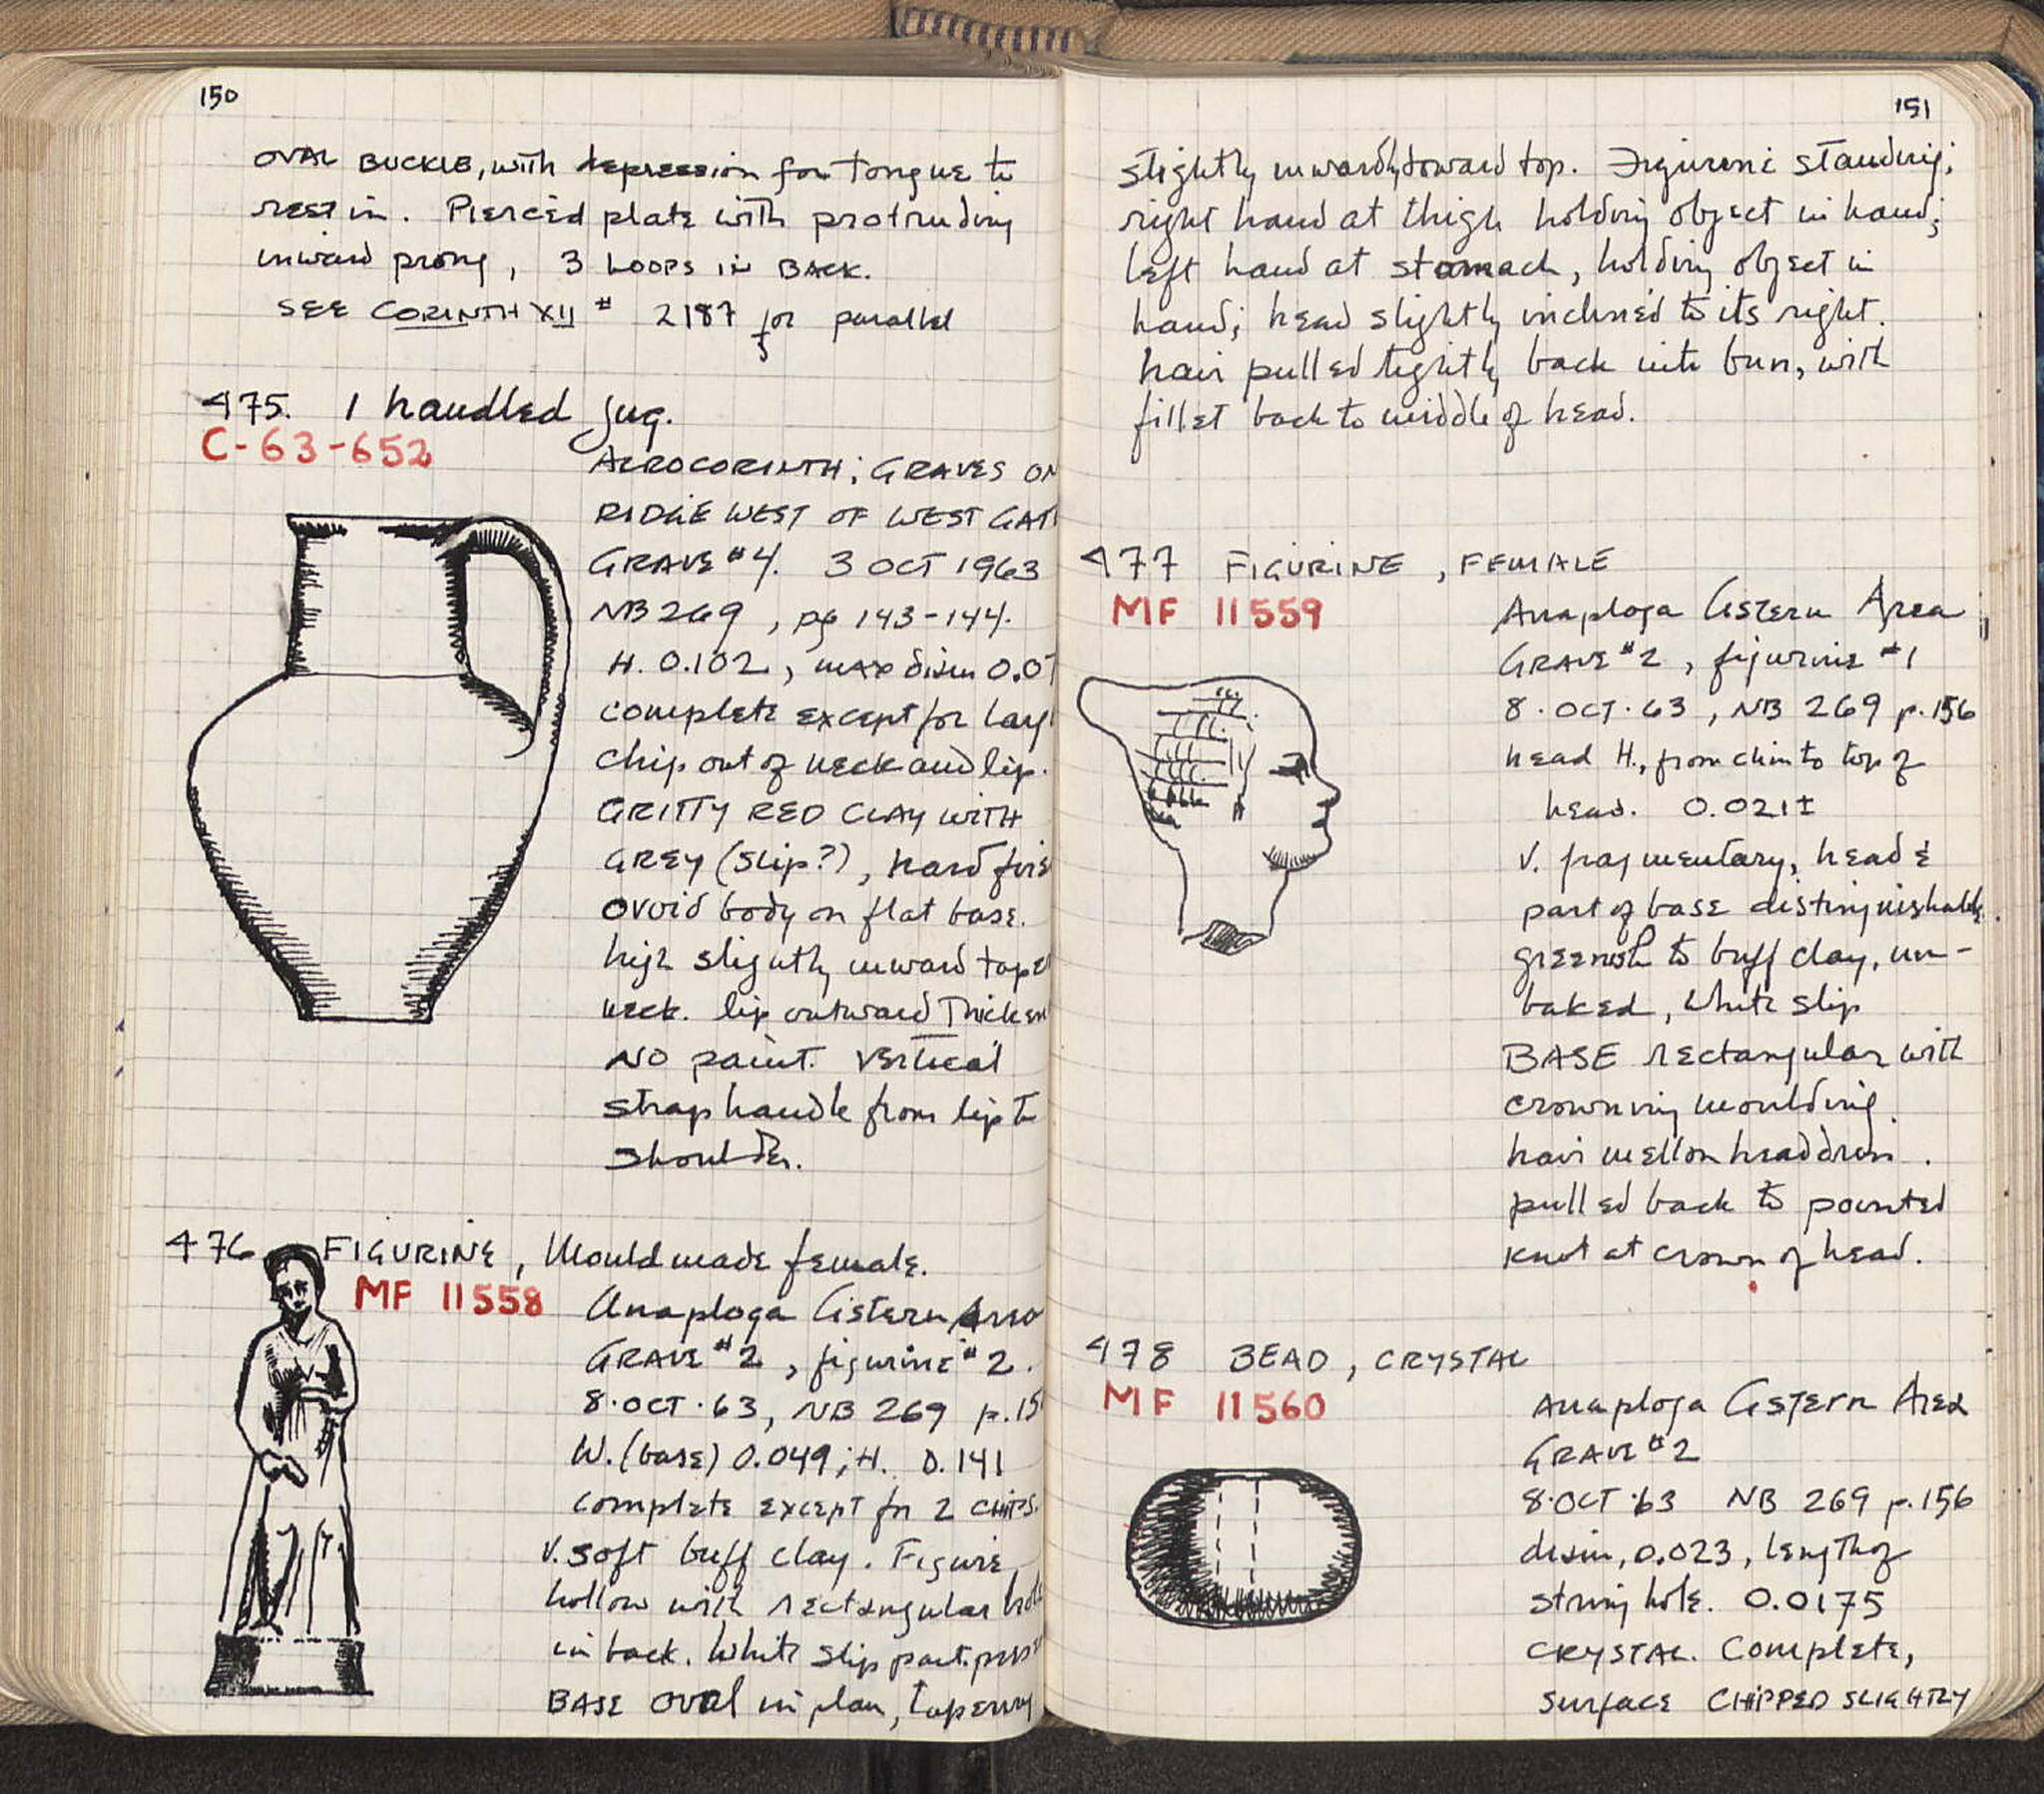 150
OVAL BUCKLE, with depression for tongue to
rest in. Pierced plate with protruding
inward prong, 3 LOOPS IN BACK.
SEE CORINTH XII # 2187 for parallel
475. 1 handled jug.
C-63-652
ACROCORINTH; GRAVES ON
RIDGE WEST OF WEST GAT
GRAVE #4. 3 OCT 1963
NB 269, pg 143-144.
H. 0.102, max diam 0.07
complete except for larg
chip out of neck and lip.
GRITTY RED CLAY WITH
GREY (slip?), hard firs
ovoid body on flat base.
high slightly inward tape
neck. lip outward Thicken
NO paint. Vertical
strap handle from lip to
shoulder.
476 FIGURINE, Mould made female.
MF 11558
Anaploga Cistern Area
GRAVE #2, figurine #2.
8·OCT·63, NB 269 p.15
W. (base) 0.049; H. 0.141
complete except for 2 chips.
V. soft buff clay. Figure,
hollow with rectangular hole
in back. White slip part. pres
BASE oval in plan, tapering
151
slightly inwardly toward top. Figurine standing;
right hand at thigh holding object in hand;
left hand at stomach, holding object in
hand; head slightly inclined to its right.
hair pulled tightly back into bun, with
fillet back to middle of head.
477 FIGURINE, FEMALE
MF 11559
Anaploga Cistern Area
GRAVE #2, figurine #1
8·OCT·63, NB 269 p.156
head H., from chin to top of
head. 0.021±
V. fragmentary, head &
part of base distinguishable.
greenish to buff clay, un-
baked, white slip
BASE rectangular with
crowning moulding.
hair mellon headdress.
pulled back to pointed
knot at crown of head.
478 BEAD, CRYSTAL
MF 11560
Anaploga Cistern Area
GRAVE #2
8·OCT·63 NB 269 p.156
diam, 0.023, length of
string hole. 0.0175
CRYSTAL. Complete,
surface CHIPPED SLIGHTLY